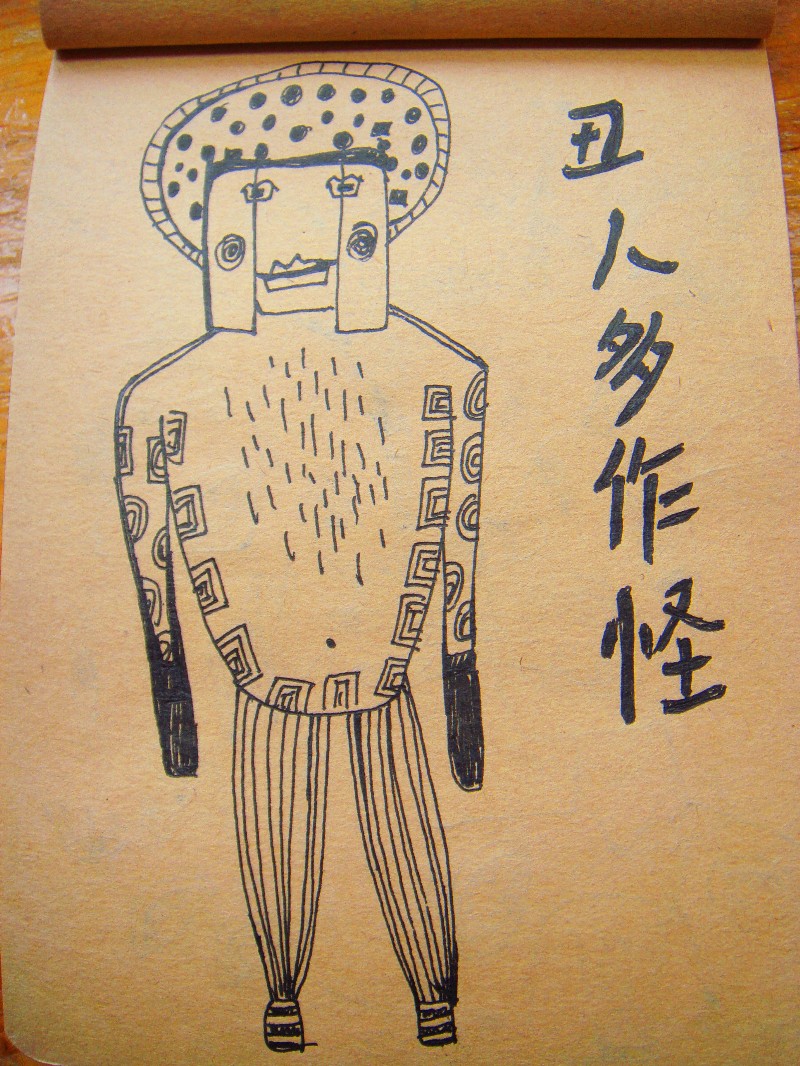 丑人多作怪